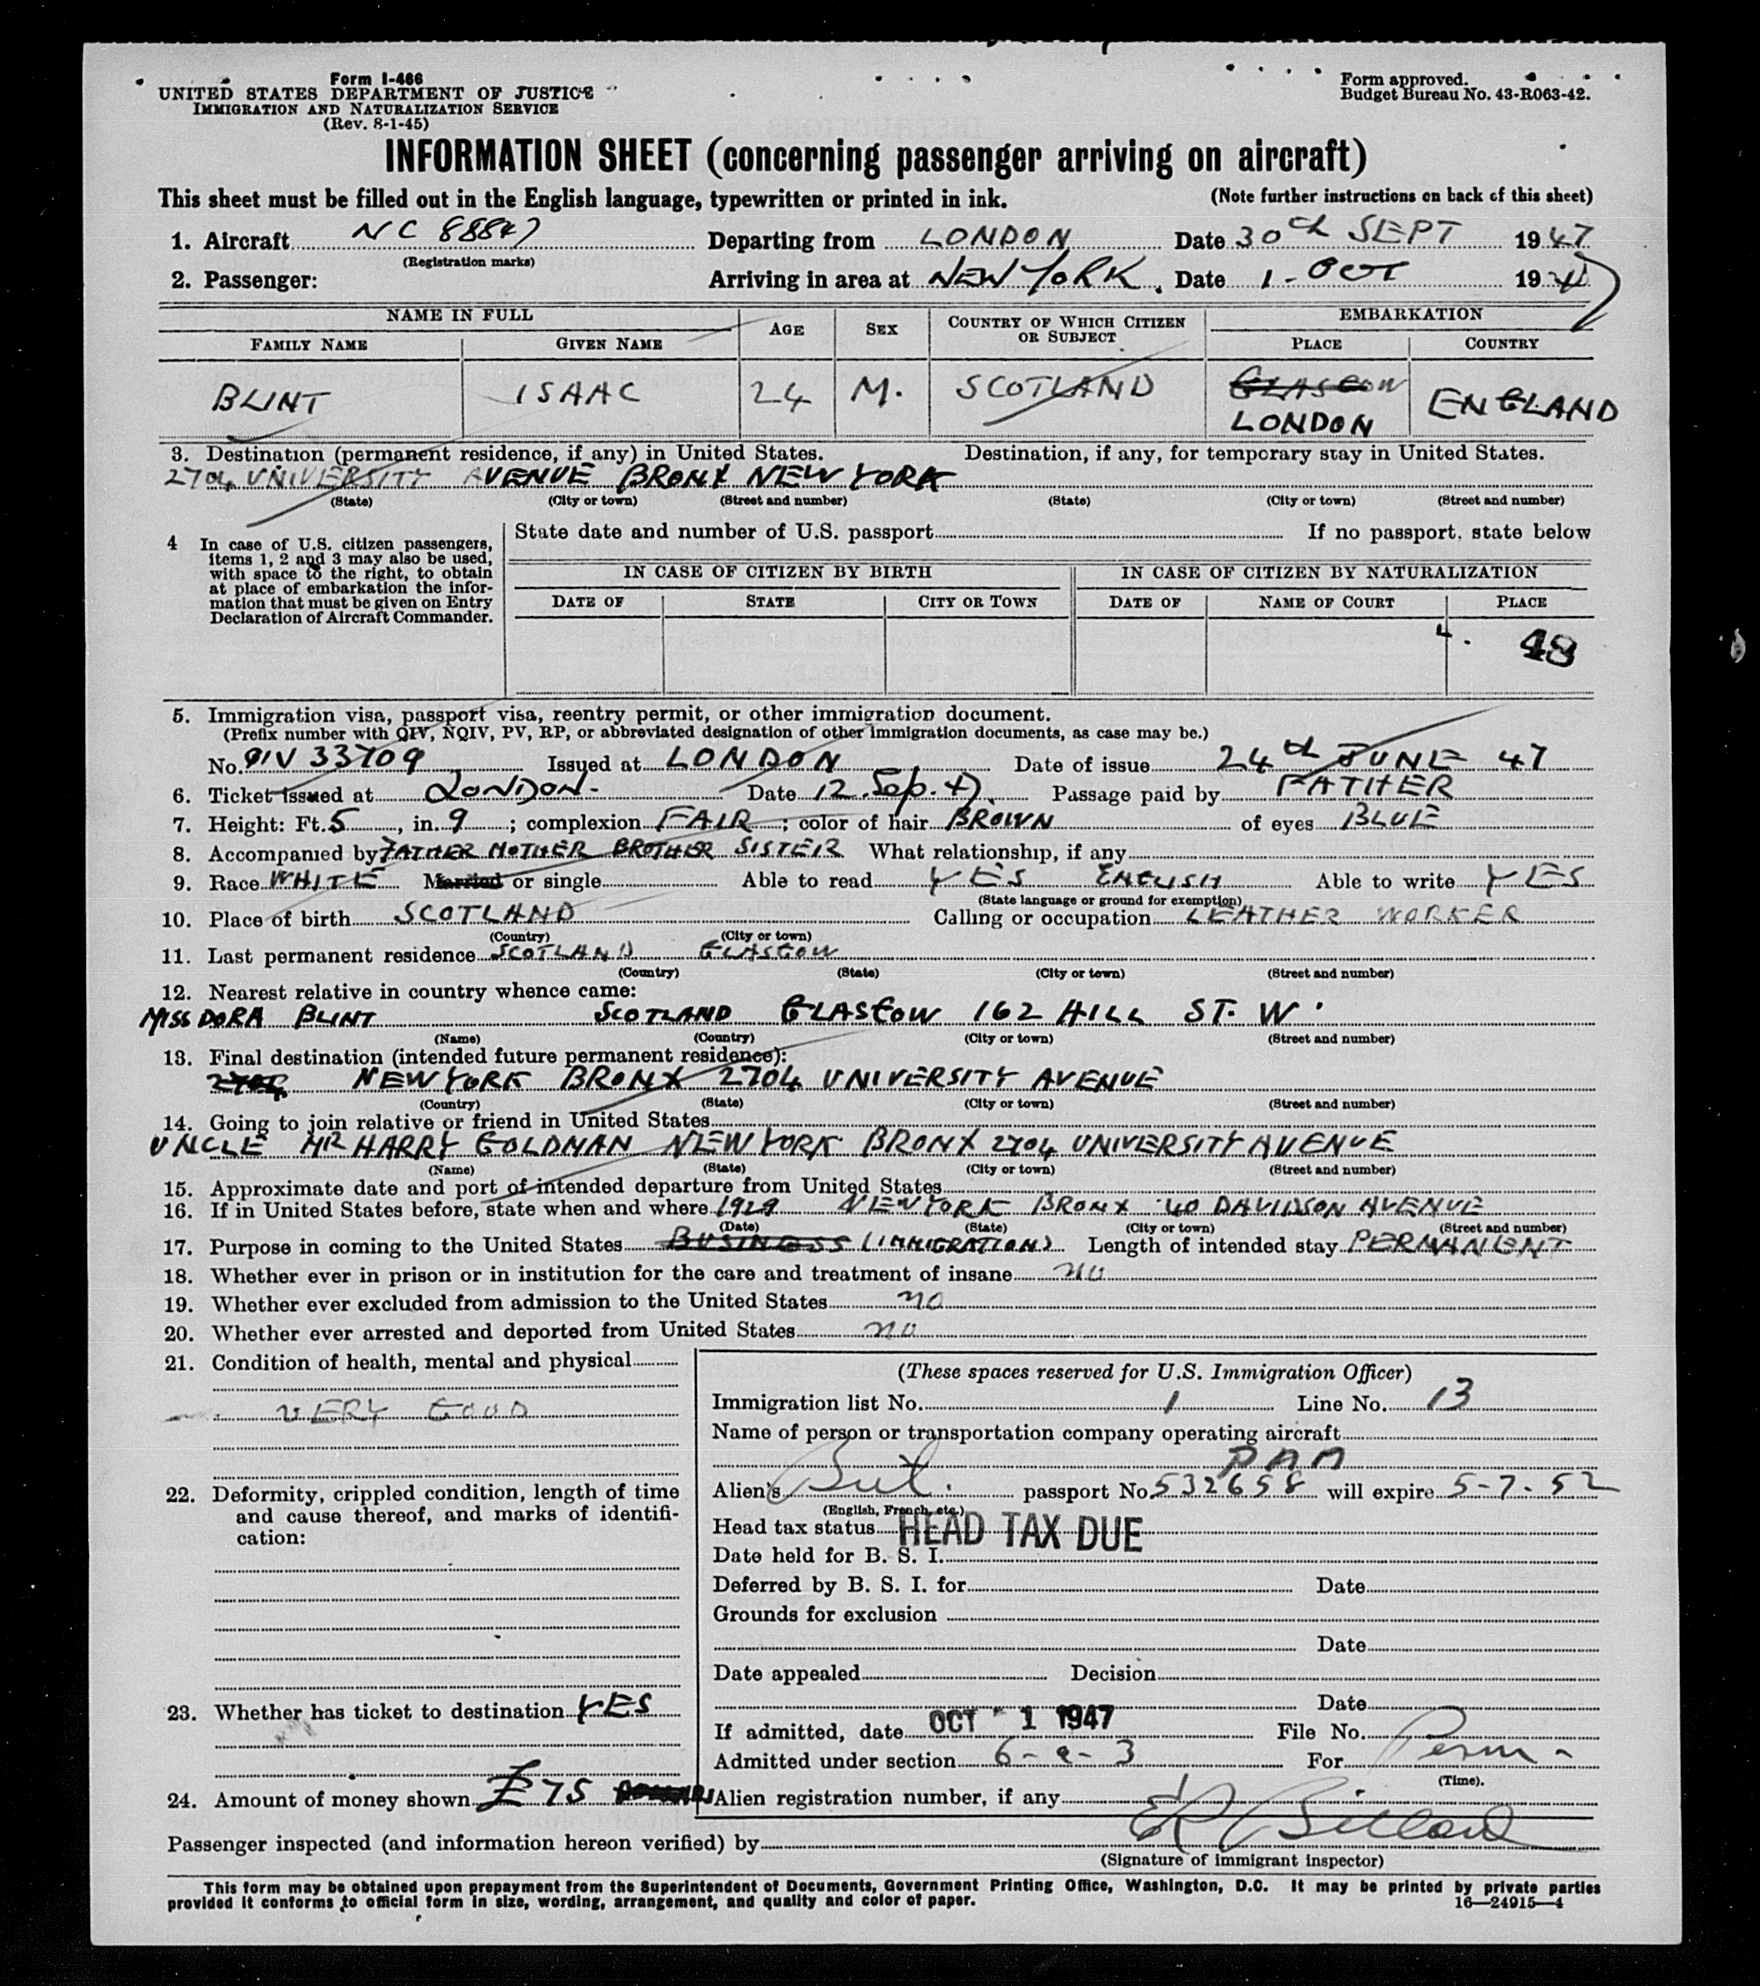 Form I-466
UNITED STATES DEPARTMENT OF JUSTICE
IMMIGRATION AND NATURALIZATION SERVICE
(Rev. 8-1-45)
Form approved.
Budget Bureau No. 43-R063-42.
INFORMATION SHEET (concerning passenger arriving on aircraft)
This sheet must be filled out in the English language, typewritten or printed in ink. (Note further instructions on back of this sheet)
1. Aircraft NC 88847 Departing from LONDON Date 30th SEPT 1947
(Registration marks)
2. Passenger: Arriving in area at NEW YORK. Date 1-OCT 1947
NAME IN FULL AGE SEX COUNTRY OF WHICH CITIZEN OR SUBJECT EMBARKATION
FAMILY NAME GIVEN NAME PLACE COUNTRY
BLINT ISAAC 24 M. SCOTLAND GLASGOW ENGLAND
LONDON
3. Destination (permanent residence, if any) in United States. Destination, if any, for temporary stay in United States.
2704 UNIVERSITY AVENUE BRONX NEW YORK
(State) (City or town) (Street and number) (State) (City or town) (Street and number)
4 In case of U.S. citizen passengers, items 1, 2 and 3 may also be used, with space to the right, to obtain at place of embarkation the information that must be given on Entry Declaration of Aircraft Commander.
State date and number of U.S. passport If no passport, state below
IN CASE OF CITIZEN BY BIRTH IN CASE OF CITIZEN BY NATURALIZATION
DATE OF STATE CITY OR TOWN DATE OF NAME OF COURT PLACE
48
5. Immigration visa, passport visa, reentry permit, or other immigration document.
(Prefix number with QIV, NQIV, PV, RP, or abbreviated designation of other immigration documents, as case may be.)
No. QIV 33709 Issued at LONDON Date of issue 24th JUNE 47
6. Ticket issued at LONDON- Date 12.Sep.47. Passage paid by FATHER
7. Height: Ft. 5, in. 9; complexion FAIR; color of hair BROWN of eyes BLUE
8. Accompanied by FATHER MOTHER BROTHER SISTER What relationship, if any
9. Race WHITE Married or single Able to read YES ENGLISH Able to write YES
(State language or ground for exemption)
10. Place of birth SCOTLAND Calling or occupation LEATHER WORKER
(Country) (City or town)
11. Last permanent residence SCOTLAND GLASGOW
(Country) (State) (City or town) (Street and number)
12. Nearest relative in country whence came:
MISS DORA BLINT SCOTLAND GLASGOW 162 HILL ST. W.
(Name) (Country) (City or town) (Street and number)
13. Final destination (intended future permanent residence):
2704 NEW YORK BRONX 2704 UNIVERSITY AVENUE
(Country) (State) (City or town) (Street and number)
14. Going to join relative or friend in United States
UNCLE MR HARRY GOLDMAN NEW YORK BRONX 2704 UNIVERSITY AVENUE
(Name) (State) (City or town) (Street and number)
15. Approximate date and port of intended departure from United States
16. If in United States before, state when and where 1929 NEW YORK BRONX 40 DAVIDSON AVENUE
(Date) (State) (City or town) (Street and number)
17. Purpose in coming to the United States BUSINESS (IMMIGRATION) Length of intended stay PERMANENT
18. Whether ever in prison or in institution for the care and treatment of insane no
19. Whether ever excluded from admission to the United States no
20. Whether ever arrested and deported from United States no
21. Condition of health, mental and physical
VERY GOOD
22. Deformity, crippled condition, length of time and cause thereof, and marks of identification:
23. Whether has ticket to destination YES
24. Amount of money shown £75
(These spaces reserved for U.S. Immigration Officer)
Immigration list No. 1 Line No. 13
Name of person or transportation company operating aircraft
PAA
Alien's Brit. passport No. 532658 will expire 5-7-52
(English, French, etc.)
Head tax status HEAD TAX DUE
Date held for B. S. I.
Deferred by B. S. I. for Date
Grounds for exclusion
Date
Date appealed Decision
Date
If admitted, date OCT - 1 1947 File No.
Admitted under section 6-a-3 For Perm-
(Time).
Alien registration number, if any
Passenger inspected (and information hereon verified) by
(Signature of immigrant inspector)
This form may be obtained upon prepayment from the Superintendent of Documents, Government Printing Office, Washington, D.C. It may be printed by private parties
provided it conforms to official form in size, wording, arrangement, and quality and color of paper. 16—24915—4